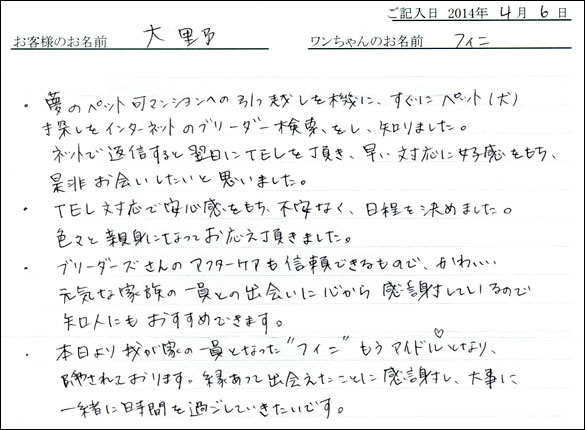 ご記入日 2014年 4月 6日
お客様のお名前 大野 ワンちゃんのお名前 フィニ
・夢のペット可マンションへの引っ越しを機に、すぐにペット(犬)
を探しをインターネットのブリーダー検索をし、知りました。
ネットで返信すると翌日にTELを頂き、早い対応に好感をもち、
是非お会いしたいと思いました。
・TEL対応で安心感をもち、不安なく、日程を決めました。
色々と親身になってお応え頂きました。
・ブリーダーズさんのアフターケアも信頼できるもので、かわいい
元気な家族の一員との出会いに心から感謝しているので
知人にもおすすめできます。
・本日より我が家の一員となった"フィニ"もうアイドル♡となり、
癒されております。縁あって出会えたことに感謝し、大事に
一緒に日時間を過ごしていきたいです。